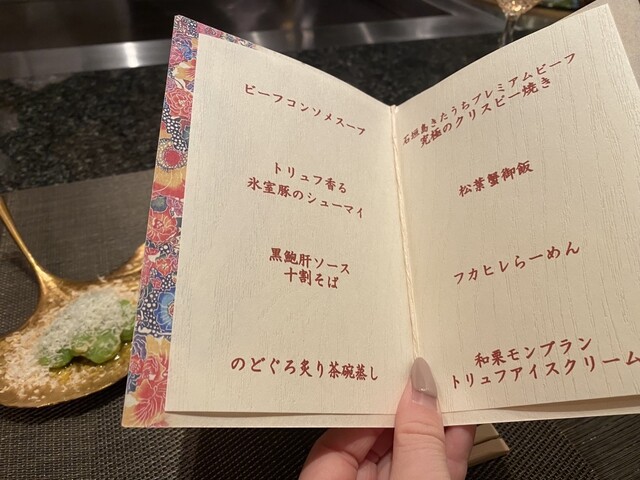 ビーフコンソメスープ
トリュフ香る
氷室豚のシューマイ
黒鮑肝ソース
十割そば
のどぐろ炙り茶碗蒸し
石垣島きたうちプレミアムビーフ
究極のクリスピー焼き
松葉蟹御飯
フカヒレらーめん
和栗モンブラン
トリュフアイスクリーム